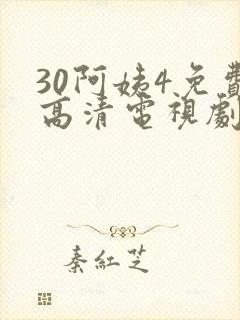 30阿姨4免費
高清電視劇
秦紅芝